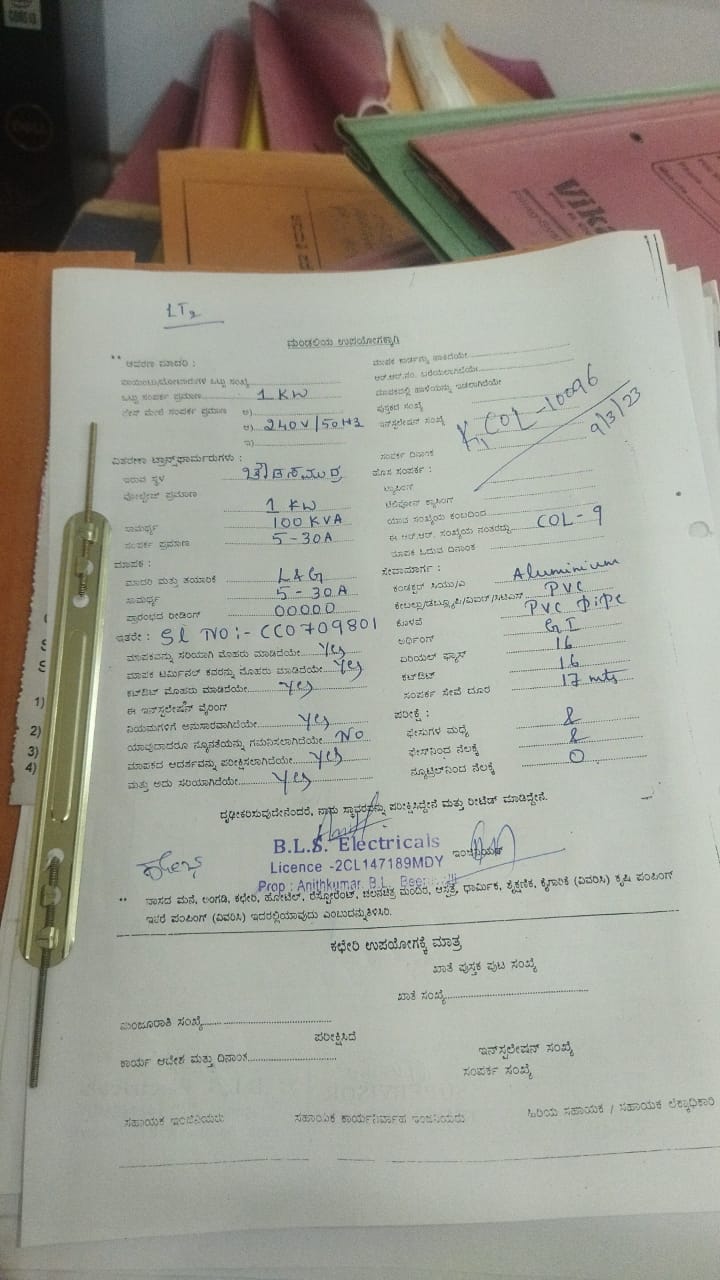 DELL
Vika
LT2
ಮಂಡಲಿಯ ಉಪಯೋಗಕ್ಕಾಗಿ
** ಆವರಣ ಮಾದರಿ :
ಒಟ್ಟು ಸಂಪರ್ಕ ಪ್ರಮಾಣ 1 KW
ಅ)
ಆ) 240V/50HZ
ಇ)
ವಿತರಣಾ ಟ್ರಾನ್ಸ್‌ಫಾರ್ಮರುಗಳು :
ಇರುವ ಸ್ಥಳ
ವೋಲ್ಟೇಜ್ ಪ್ರಮಾಣ 1 KW
ಸಾಮರ್ಥ್ಯ 100 KVA
ಸಂಪರ್ಕ ಪ್ರಮಾಣ 5-30A
ಮಾಪಕ :
ಮಾದರಿ ಮತ್ತು ತಯಾರಿಕೆ L&G
ಸಾಮರ್ಥ್ಯ 5-30A
ಪ್ರಾರಂಭದ ರೀಡಿಂಗ್ 00000
ಇತರೇ : Sl NO:- CC0709801
ಮಾಪಕವನ್ನು ಸರಿಯಾಗಿ ಮೊಹರು ಮಾಡಿದೆಯೇ... Yes
ಮಾಪಕ ಟರ್ಮಿನಲ್ ಕವರನ್ನು ಮೊಹರು ಮಾಡಿದೆಯೇ... Yes
ಕಟ್‌ಔಟ್ ಮೊಹರು ಮಾಡಿದೆಯೇ... Yes
ಈ ಇನ್‌ಸ್ಪಲೇಷನ್ ವೈರಿಂಗ್
ನಿಯಮಗಳಿಗೆ ಅನುಸಾರವಾಗಿದೆಯೇ... Yes
ಯಾವುದಾದರೂ ನ್ಯೂನತೆಯನ್ನು ಗಮನಿಸಲಾಗಿದೆಯೇ... No
ಮಾಪಕದ ಆದರ್ಶವನ್ನು ಪರೀಕ್ಷಿಸಲಾಗಿದೆಯೇ... Yes
ಮತ್ತು ಅದು ಸರಿಯಾಗಿದೆಯೇ... Yes
ಪುಸ್ತಕದ ಸಂಖ್ಯೆ
ಇನ್‌ಸ್ಪಲೇಷನ್ ಸಂಖ್ಯೆ COL-10096
ಸಂಪರ್ಕ ದಿನಾಂಕ 9/3/23
ಹೊಸ ಸಂಪರ್ಕ :
ಟ್ಯಾಪಿಂಗ್
ಯಾವ ಸಂಖ್ಯೆಯ ಕಂಬದಿಂದ
ಈ ಆರ್.ಆರ್. ಸಂಖ್ಯೆಯ ನಂತರದ್ದು COL-9
ಮಾಪಕ ಓದುವ ದಿನಾಂಕ
ಸೇವಾಮಾರ್ಗ :
ಕಂಡಕ್ಟರ್ ಸಿಯು/ಎ Aluminium
PVC
ಕೊಳವೆ PVC Pipe
ಅರ್ಥಿಂಗ್ GI
ಏರಿಯಲ್ ಫ್ಯೂಸ್ 16
ಕಟ್‌ಔಟ್ 16
ಸಂಪರ್ಕ ಸೇವೆ ದೂರ 17 mts
ಪರೀಕ್ಷೆ :
ಫೇಸುಗಳ ಮಧ್ಯೆ
ಫೇಸ್‌ನಿಂದ ನೆಲಕ್ಕೆ
ನ್ಯೂಟ್ರಲ್‌ನಿಂದ ನೆಲಕ್ಕೆ 0
ದೃಢೀಕರಿಸುವುದೇನೆಂದರೆ, ನಾನು ಸ್ಥಾವರವನ್ನು ಪರೀಕ್ಷಿಸಿದ್ದೇನೆ ಮತ್ತು ರೀಟೆಡ್ ಮಾಡಿದ್ದೇನೆ.
B.L.S. Electricals
Licence -2CL147189MDY
Prop : Anithkumar. B.L.
** ವಾಸದ ಮನೆ, ಅಂಗಡಿ, ಕಛೇರಿ, ಹೋಟೆಲ್, ರೆಸ್ಟೋರೆಂಟ್, ಚಲನಚಿತ್ರ ಮಂದಿರ, ಆಸ್ಪತ್ರೆ, ಧಾರ್ಮಿಕ, ಶೈಕ್ಷಣಿಕ, ಕೈಗಾರಿಕೆ (ವಿವರಿಸಿ) ಕೃಷಿ ಪಂಪಿಂಗ್
ಇತರೆ ಪಂಪಿಂಗ್ (ವಿವರಿಸಿ) ಇದರಲ್ಲಿಯಾವುದು ಎಂಬುದನ್ನುತಿಳಿಸಿರಿ.
ಕಛೇರಿ ಉಪಯೋಗಕ್ಕೆ ಮಾತ್ರ
ಖಾತೆ ಪುಸ್ತಕ ಪುಟ ಸಂಖ್ಯೆ
ಖಾತೆ ಸಂಖ್ಯೆ
ಮಂಜೂರಾತಿ ಸಂಖ್ಯೆ
ಪರೀಕ್ಷಿಸಿದೆ
ಕಾರ್ಯ ಆದೇಶ ಮತ್ತು ದಿನಾಂಕ
ಇನ್‌ಸ್ಪಲೇಷನ್ ಸಂಖ್ಯೆ
ಸಂಪರ್ಕ ಸಂಖ್ಯೆ
ಸಹಾಯಕ ಇಂಜಿನಿಯರು ಸಹಾಯಕ ಕಾರ್ಯನಿರ್ವಾಹ ಇಂಜನಿಯರು ಹಿರಿಯ ಸಹಾಯಕ / ಸಹಾಯಕ ಲೆಕ್ಕಾಧಿಕಾರಿ
1)
2)
3)
4)